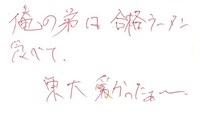 俺の弟は合格ラーメン
食べて、
東大受かったぁ〜。